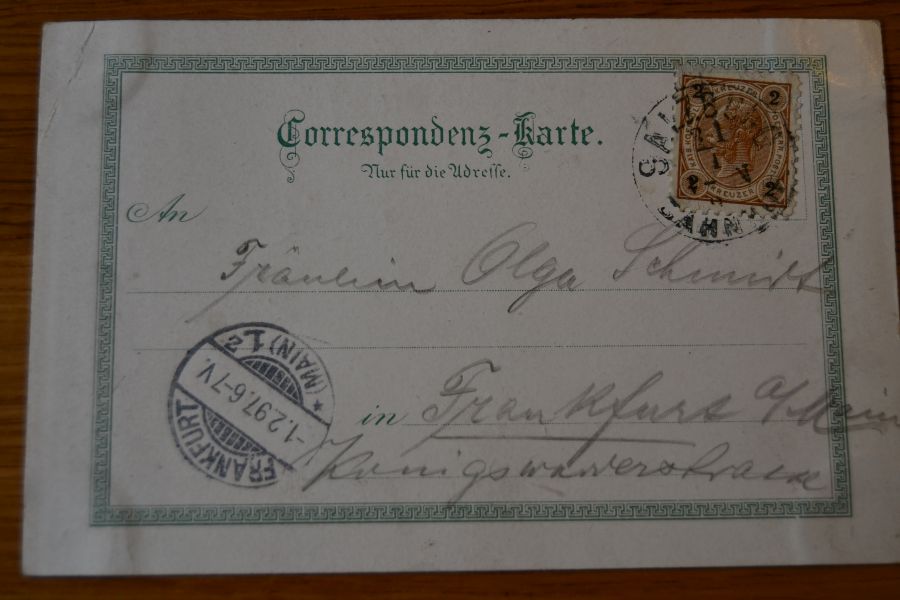 Correspondenz-Karte.
Nur für die Adresse.
2 2
KREUZER
2 2
KREUZER
BAHN
An
Fräulein Olga Schmidt
FRANKFURT (MAIN) 1 z
-1.2.97.6-7 V.
in Frankfurt a/Main